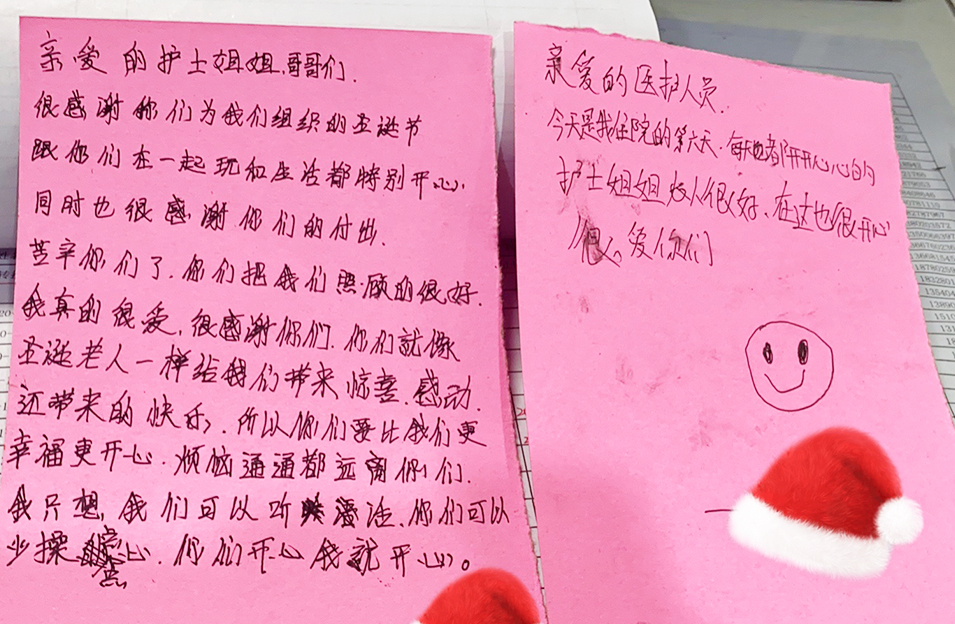 亲爱的护士姐姐,哥哥们.
很感谢你们为我们组织的圣诞节
跟你们在一起玩和生活都特别开心,
同时也很感谢你们的付出.
苦辛你们了.你们把我们照顾的很好.
我真的很爱,很感谢你们.你们就像
圣诞老人一样给我们带来惊喜.感动.
还带来的快乐,所以你们要比我们更
幸福更开心.烦恼通通都远离你们.
我只想,我们可以听话,你们可以
少操心.你们开心我就开心。
亲爱的医护人员.
今天是我住院的第六天.每天都开开心心的
护士姐姐人很好、在这也很开心
爱你们